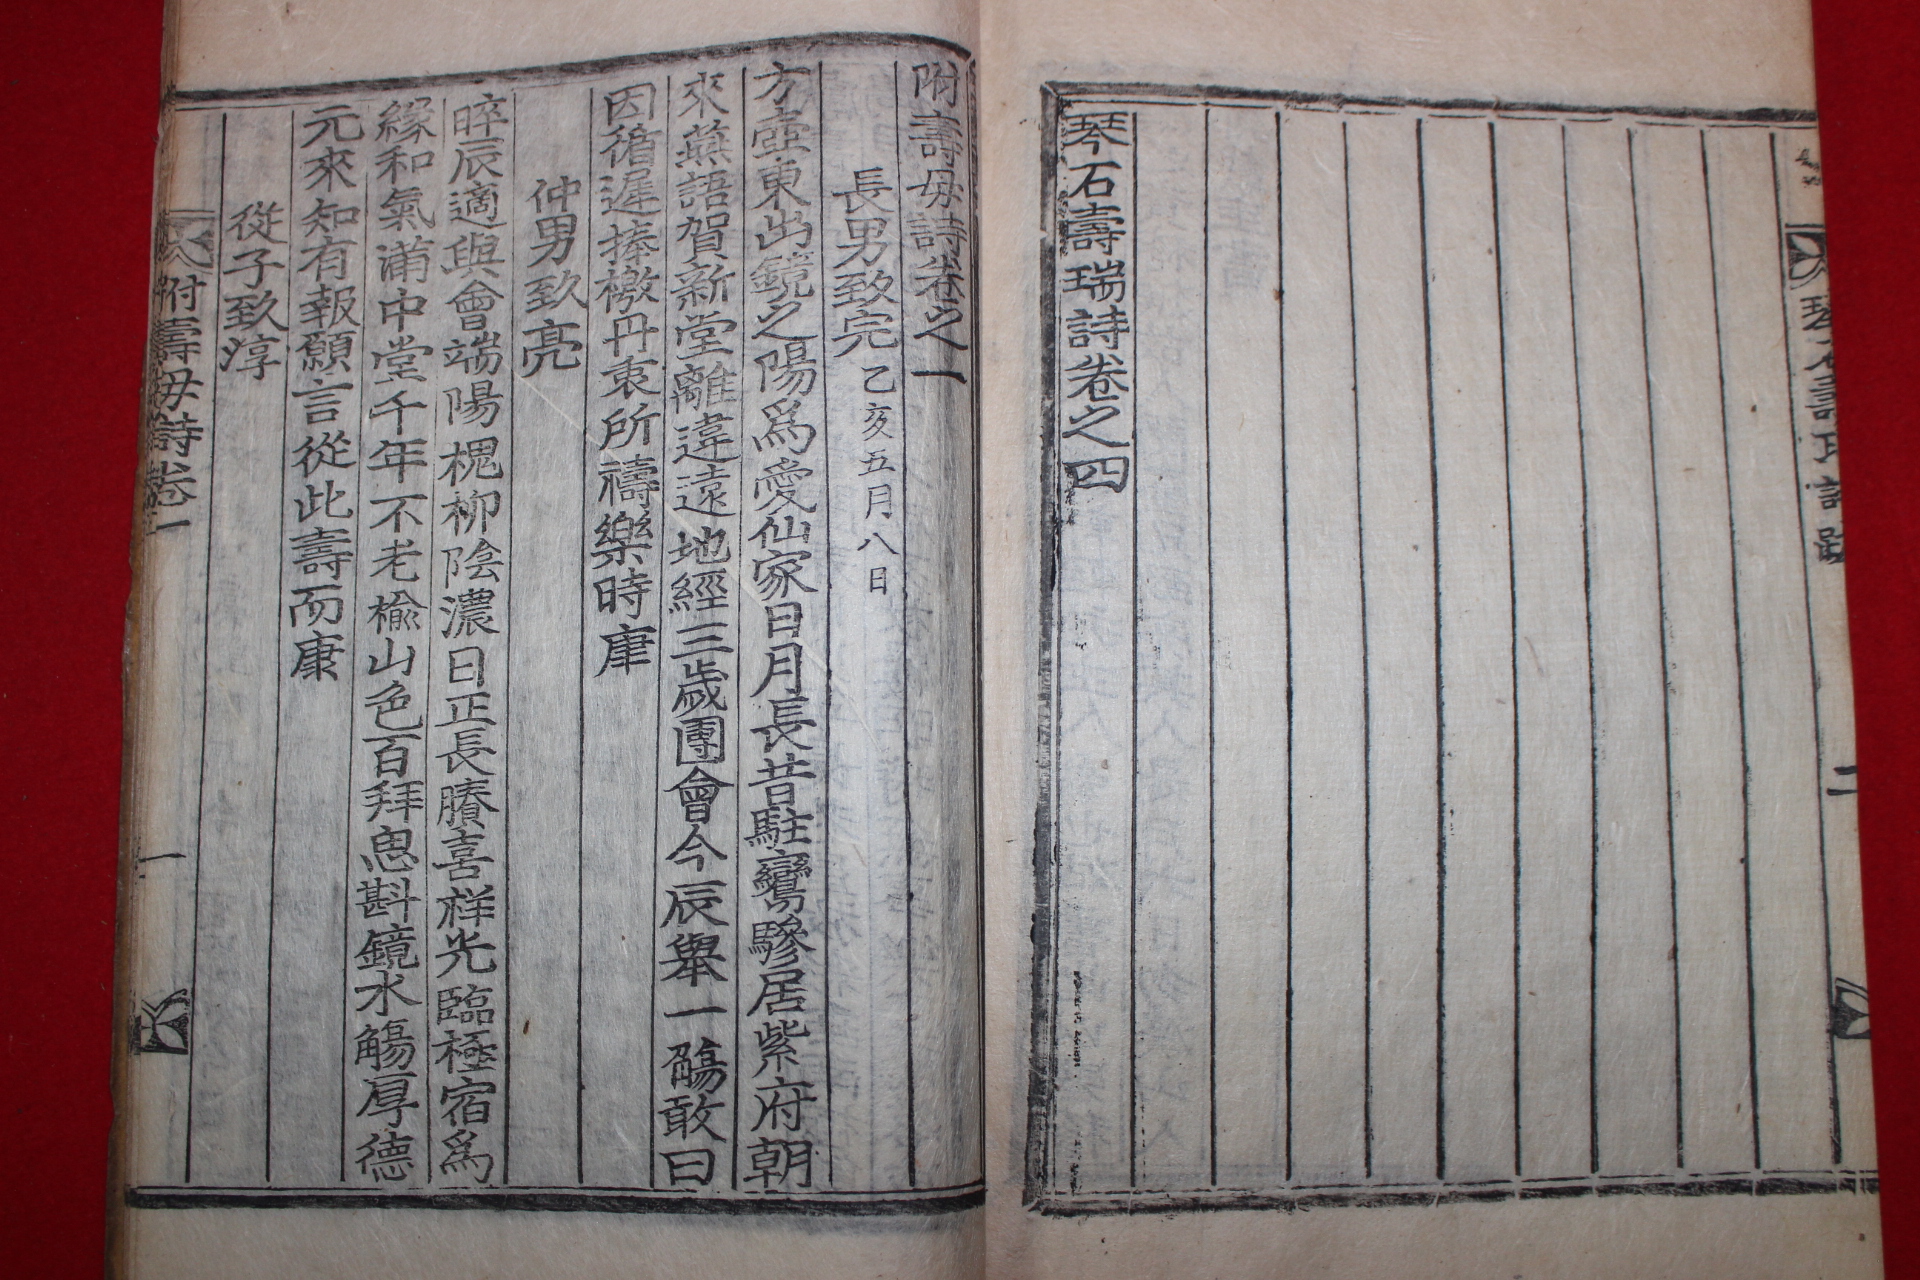 琴石壽瑞詩卷之四
二
附壽母詩卷之一
長男致完 乙亥五月八日
方壺東出鏡之陽爲愛仙家日月長昔駐鸞驂居紫府朝
來蕪語賀新堂離違遠地經三歲團會今辰舉一觴敢曰
因循遲捧檄丹衷所禱樂時康
仲男致亮
晬辰適與會端陽槐柳陰濃日正長賸喜祥光臨極宿爲
緣和氣滿中堂千年不老楡山色百拜恩斟鏡水觴厚德
元來知有報願言從此壽而康
從子致淳
附壽母詩卷一
一